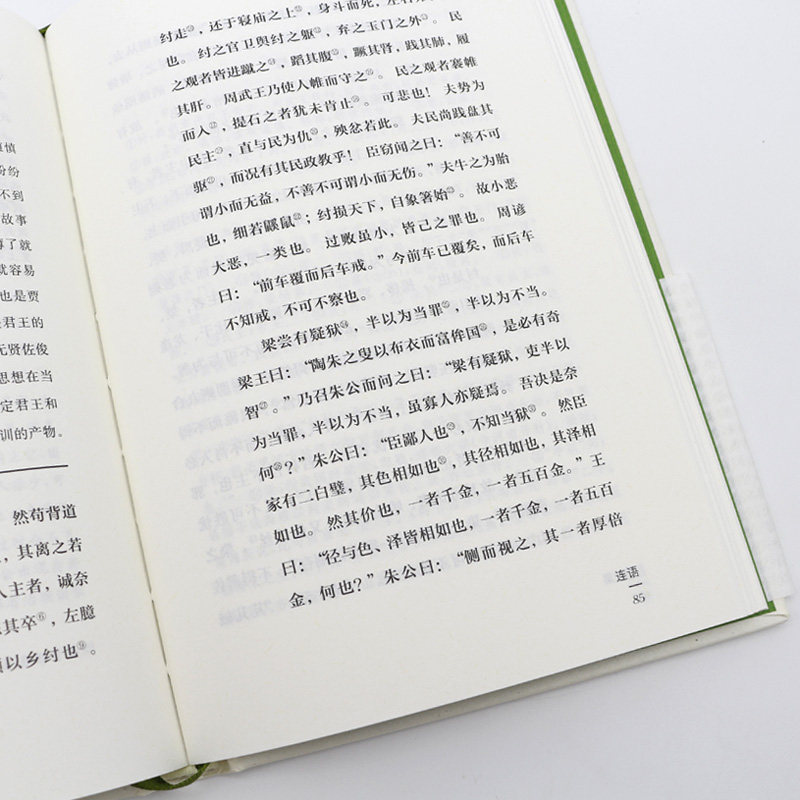 慎
纷纷
不到
故事
了就
就容易
也是贾
君王的
无贤佐俊
思想在当
定君王和
训的产物。
然苟背道
，其离之若
人主者，诚奈
其卒，左臆
以乡纣也⑨。
纣走，还于寝庙之上，身斗而死，左右
也。纣之官卫舆纣之躯，弃之玉门之外。民
之观者皆进蹴之，蹈其腹，蹶其肾，践其肺，履
其肝。周武王乃使人帷而守之。民之观者搴帷
而入，提石之者犹未肯止。可悲也！夫势为
民主，直与民为仇，殃忿若此。夫民尚践盘其
躯，而况有其民政教乎！臣窃闻之曰：“善不可
谓小而无益，不善不可谓小而无伤。”夫牛之为胎
也，细若鼷鼠；纣损天下，自象箸始。故小恶
大恶，一类也。过败虽小，皆己之罪也。周谚
曰：“前车覆而后车戒。”今前车已覆矣，而后车
不知戒，不可不察也。
梁尝有疑狱，半以为当罪，半以为不当。
梁王曰：“陶朱之叟以布衣而富侔国，是必有奇
智。”乃召朱公而问之曰：“梁有疑狱，吏半以
为当罪，半以为不当，虽寡人亦疑焉。吾决是奈
何？”朱公曰：“臣鄙人也，不知当狱。然臣
家有二白璧，其色相如也，其径相如也，其泽相
如也。然其价也，一者千金，一者五百金。”王
曰：“径与色、泽皆相如也，一者千金，一者五百
金，何也？”朱公曰：“侧而视之，其一者厚倍
连语
85